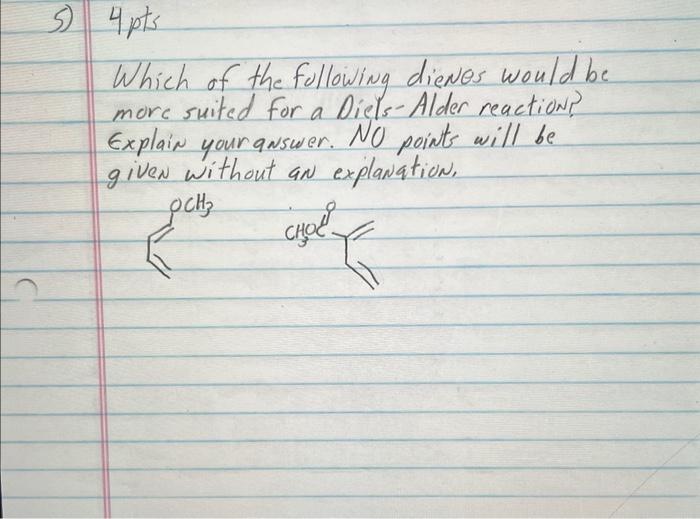 5) 4 pts
Which of the following dienes would be
more suited for a Diels-Alder reaction?
Explain your answer. NO points will be
given without an explanation.
OCH3
O
CH3OC